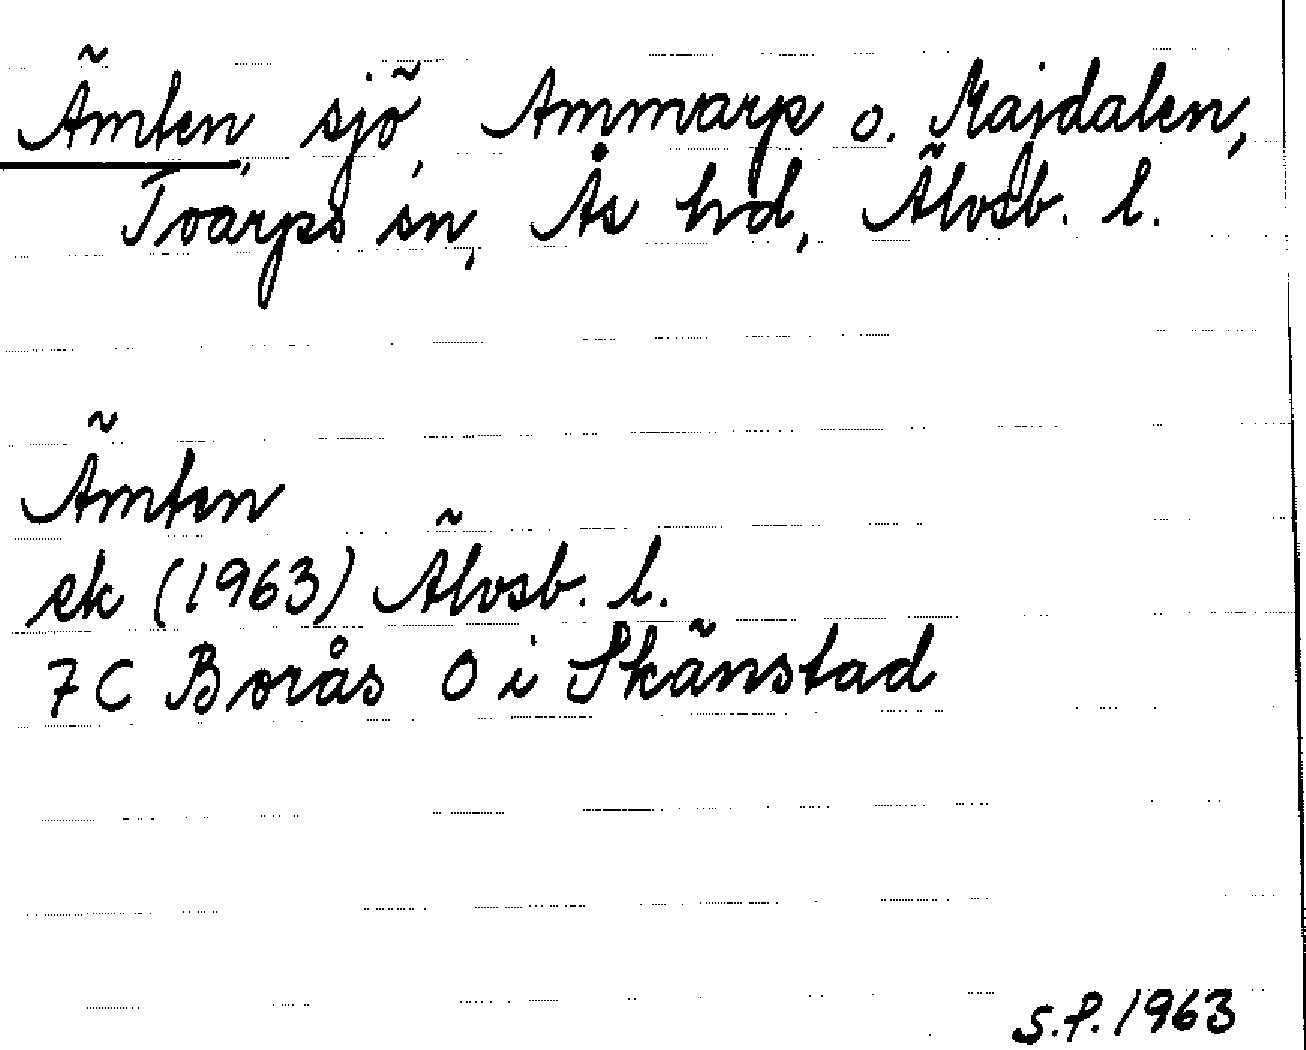 Ämten, sjö, Ammarp o. Majdalen,
Tvärps sn, Ås hd, Älvsb. l.
Ämten
ek (1963) Älvsb. l.
7 C Borås O i Skänstad
S.P. 1963